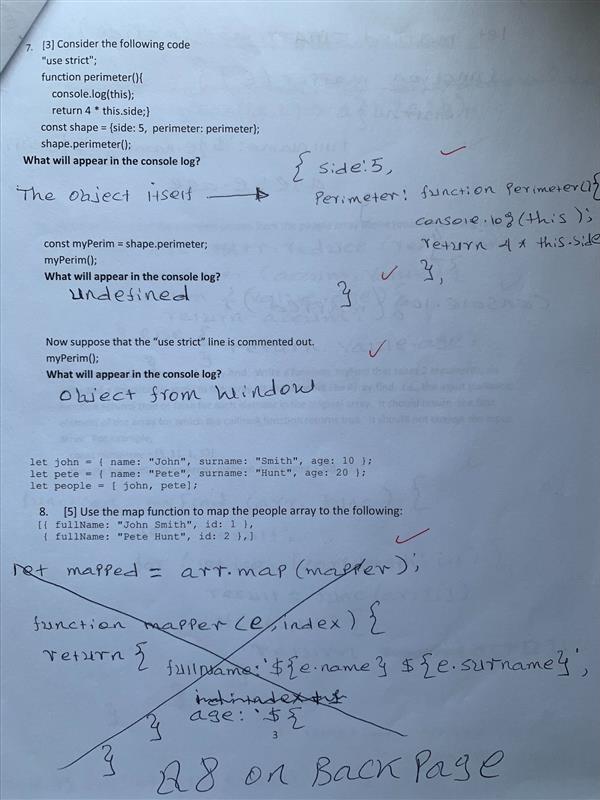 7. [3] Consider the following code
"use strict";
function perimeter(){
console.log(this);
return 4 * this.side;}
const shape = {side: 5, perimeter: perimeter};
shape.perimeter();
What will appear in the console log?
The object itself → { side: 5,
Perimeter: function Perimeter(){
console.log(this);
return 4 * this.side
},
}
const myPerim = shape.perimeter;
myPerim();
What will appear in the console log?
undefined
Now suppose that the "use strict" line is commented out.
myPerim();
What will appear in the console log?
object from window
let john = { name: "John", surname: "Smith", age: 10 };
let pete = { name: "Pete", surname: "Hunt", age: 20 };
let people = [ john, pete];
8. [5] Use the map function to map the people array to the following:
[{ fullName: "John Smith", id: 1 },
{ fullName: "Pete Hunt", id: 2 },]
let mapped = arr.map(mapper);
function mapper(e, index) {
return { fullName: `${e.name} ${e.surname}`,
age: `${
}
}
3
Q8 on Back Page